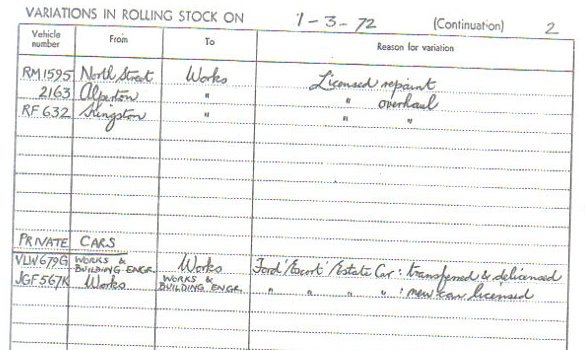 VARIATIONS IN ROLLING STOCK ON 1-3-72 (Continuation) 2
Vehicle number From To Reason for variation
RM1595 North Street Works Licensed repaint
2163 Alperton " " overhaul
RF 632 Kingston " " "
PRIVATE CARS
VLW679G WORKS & BUILDING ENGR. Works Ford 'Escort' Estate Car : transferred & delicensed
JGF567K Works WORKS & BUILDING ENGR. " " " " : new car licensed